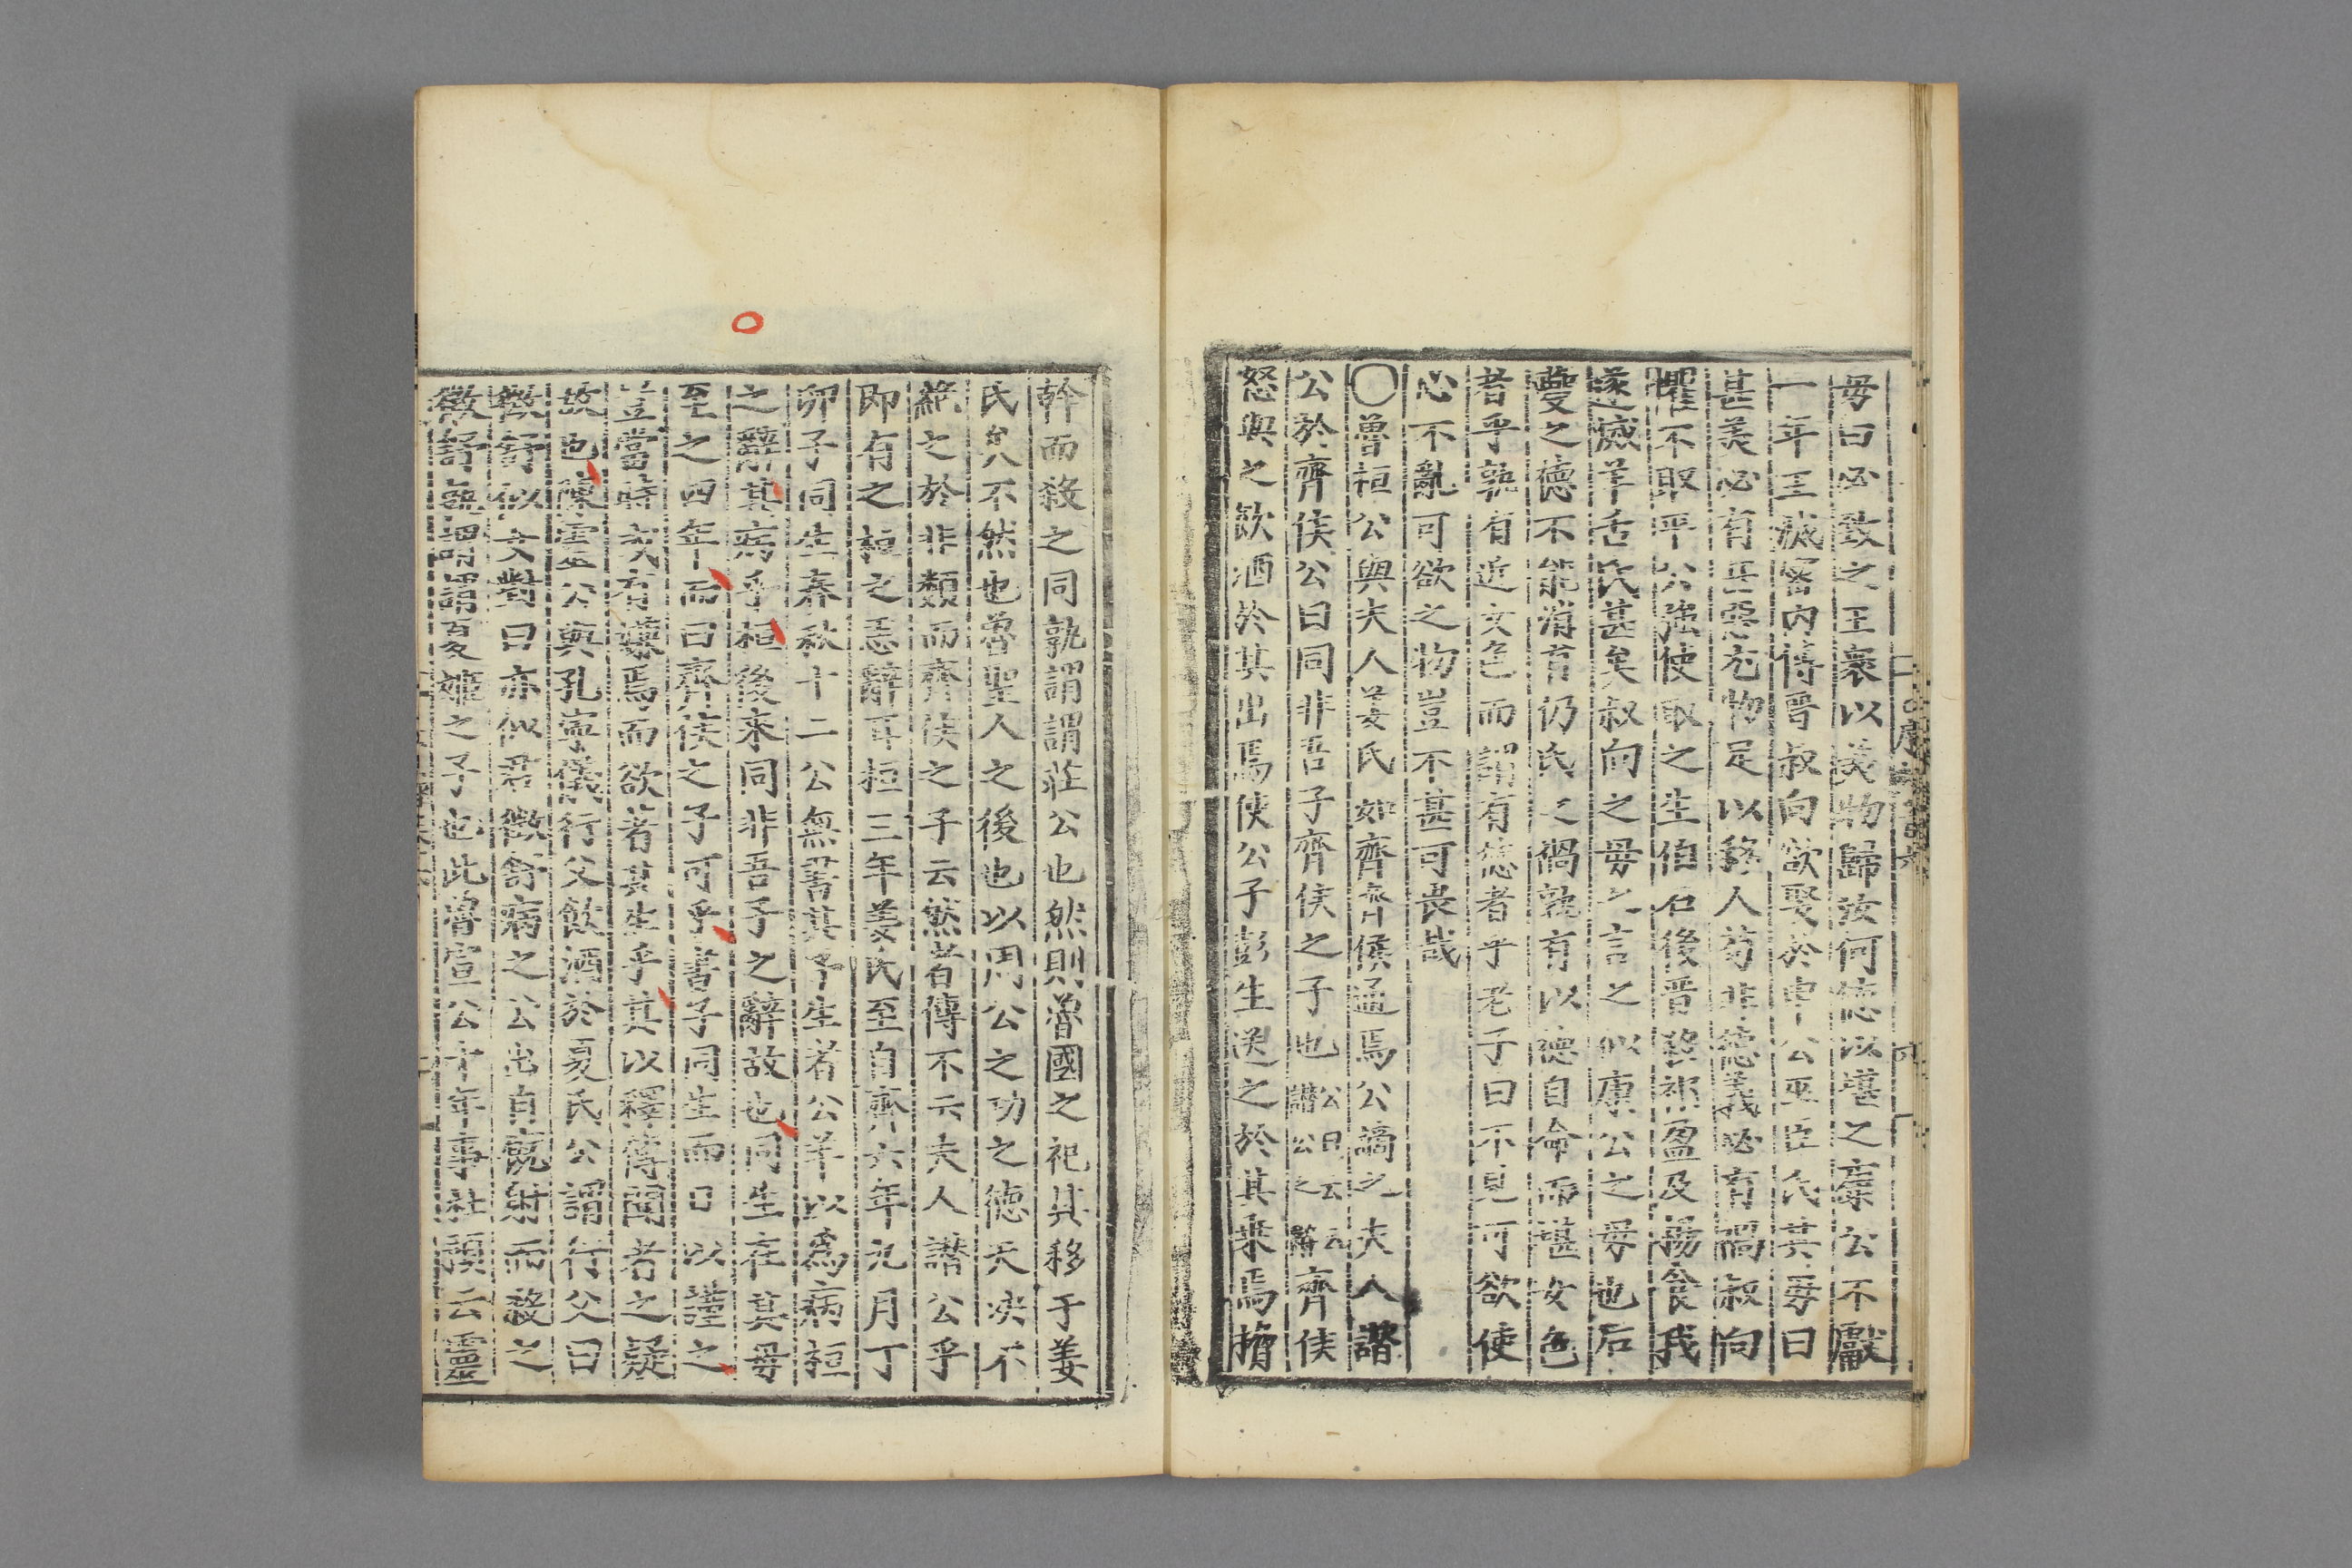 母曰必致之王衆以美物歸汝何德以堪之康公不獻
一年王滅密內傳晉叔向欲娶於申公巫臣氏其母曰
甚美必有甚惡尤物足以移人茍非德義必有禍叔向
懼不敢取平公強使取之生伯石後晉殺祁盈及楊食我
遂滅羊舌氏甚矣叔向之母之言之似康公之母也后
夔之德不能消有仍氏之禍孰有以德自命而堪女色
者乎孰有近女色而謂有德者乎老子曰不見可欲使
心不亂可欲之物豈不甚可畏哉
〇魯桓公與夫人姜氏如齊齊侯通焉公謫之夫人譖
公於齊侯公曰同非吾子齊侯之子也公曰云云譖公之辭齊侯
怒與之飲酒於其出焉使公子彭生送之於其乘焉搚
幹而殺之同孰謂謂莊公也然則魯國之祀其移于姜
氏矣不然也魯聖人之後也以周公之功之德天決不
絕之於非類而齊侯之子云然者傳不云夫人譖公乎
即有之桓之恚辭耳桓三年姜氏至自齊六年九月丁
卯子同生春秋十二公無書其子生者公羊以為病桓
之辭其病乎桓後來同非吾子之辭故也同生在其母
至之四年而曰齊侯之子可乎書子同生而日以謹之
豈當時或有嫌焉而欲著其生乎其以釋傳聞者之疑
故也陳靈公與孔寧儀行父飲酒於夏氏公謂行父曰
徵舒似女對曰亦似君徵舒病之公出自廄射而殺之
徵舒孰謂謂夏姬之子也此魯宣公十年事杜預云靈